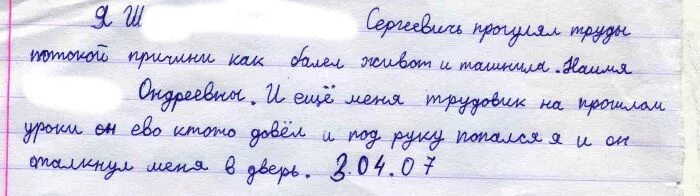 Я Ш Сергеевичь прогулял труды
потокой причини как балел живот и ташнила. Наимя
Ондреевны. И ещё меня трудовик на прошлом
уроки он ево ктото довёл и под руку попался я и он
сталкнул меня в дверь. 3.04.07